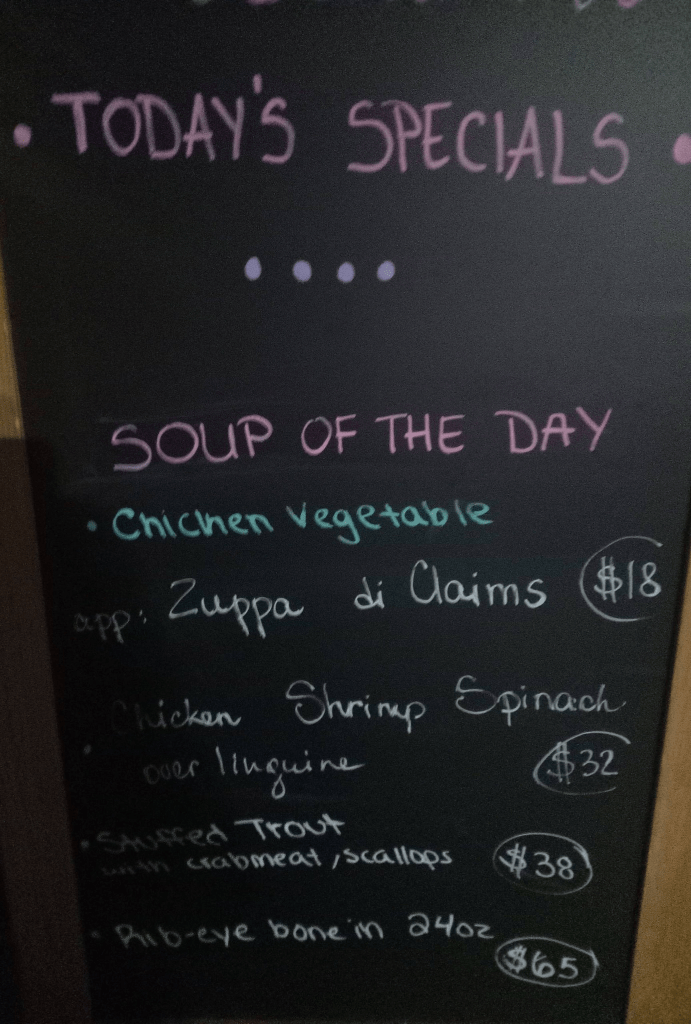 • TODAY'S SPECIALS •
• • • •
SOUP OF THE DAY
• Chichen vegetable
app: Zuppa di Claims $18
Chicken Shrimp Spinach
• over linguine $32
• Stuffed Trout
with crabmeat, scallops $38
• Rib-eye bone in 24oz
$65